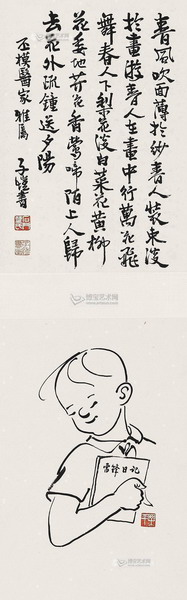 春風吹面薄於紗春人裝束淡
於畫游春人在畫中行萬花飛
舞春人下梨花淡白菜花黃柳
花委地芥花香鶯啼陌上人歸
去花外疏鐘送夕陽
丕模醫家雅属
子愷書
雷鋒日记